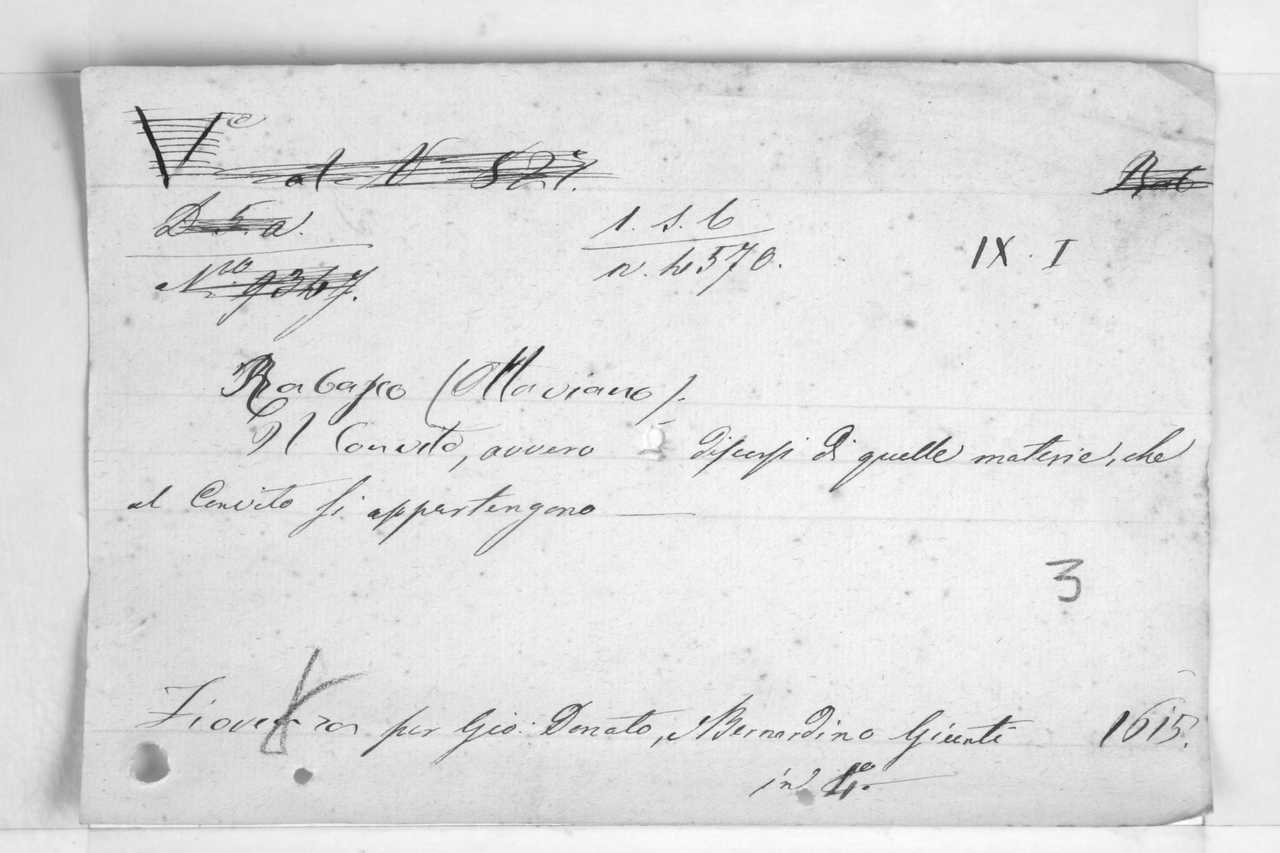 V<sup>e</sup>
al N 827.
Rab
D. 5. a.
1. s. 6
IX. I
N.ro 9367.
n. 4570.
Rabasco (Ottaviano).
Il Convito, overo discorsi di quelle materie, che
al Convito si appartengono —
3
Fiorenza per Gio: Donato, e Bernardino Giunti 1615.
in 4.o